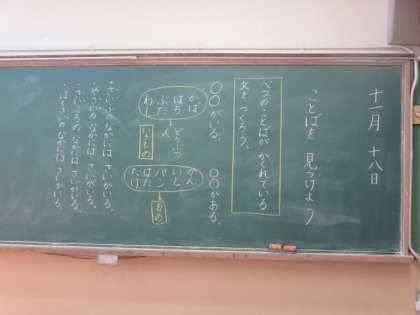 十一月 十八日
ことばを 見つけよう
べつのことばが かくれている
文を つくろう。
〇〇がいる。 〇〇がある。
かば
はち
ぶた
わし
どうぶつ
人
かん
いと
パン
はた
たけ
もの
・さいふの なかには さいがいる。
・やさいの なかには さいがいる。
・さいころの なかには さいがいる。
・はくさいの なかには さいがいる。